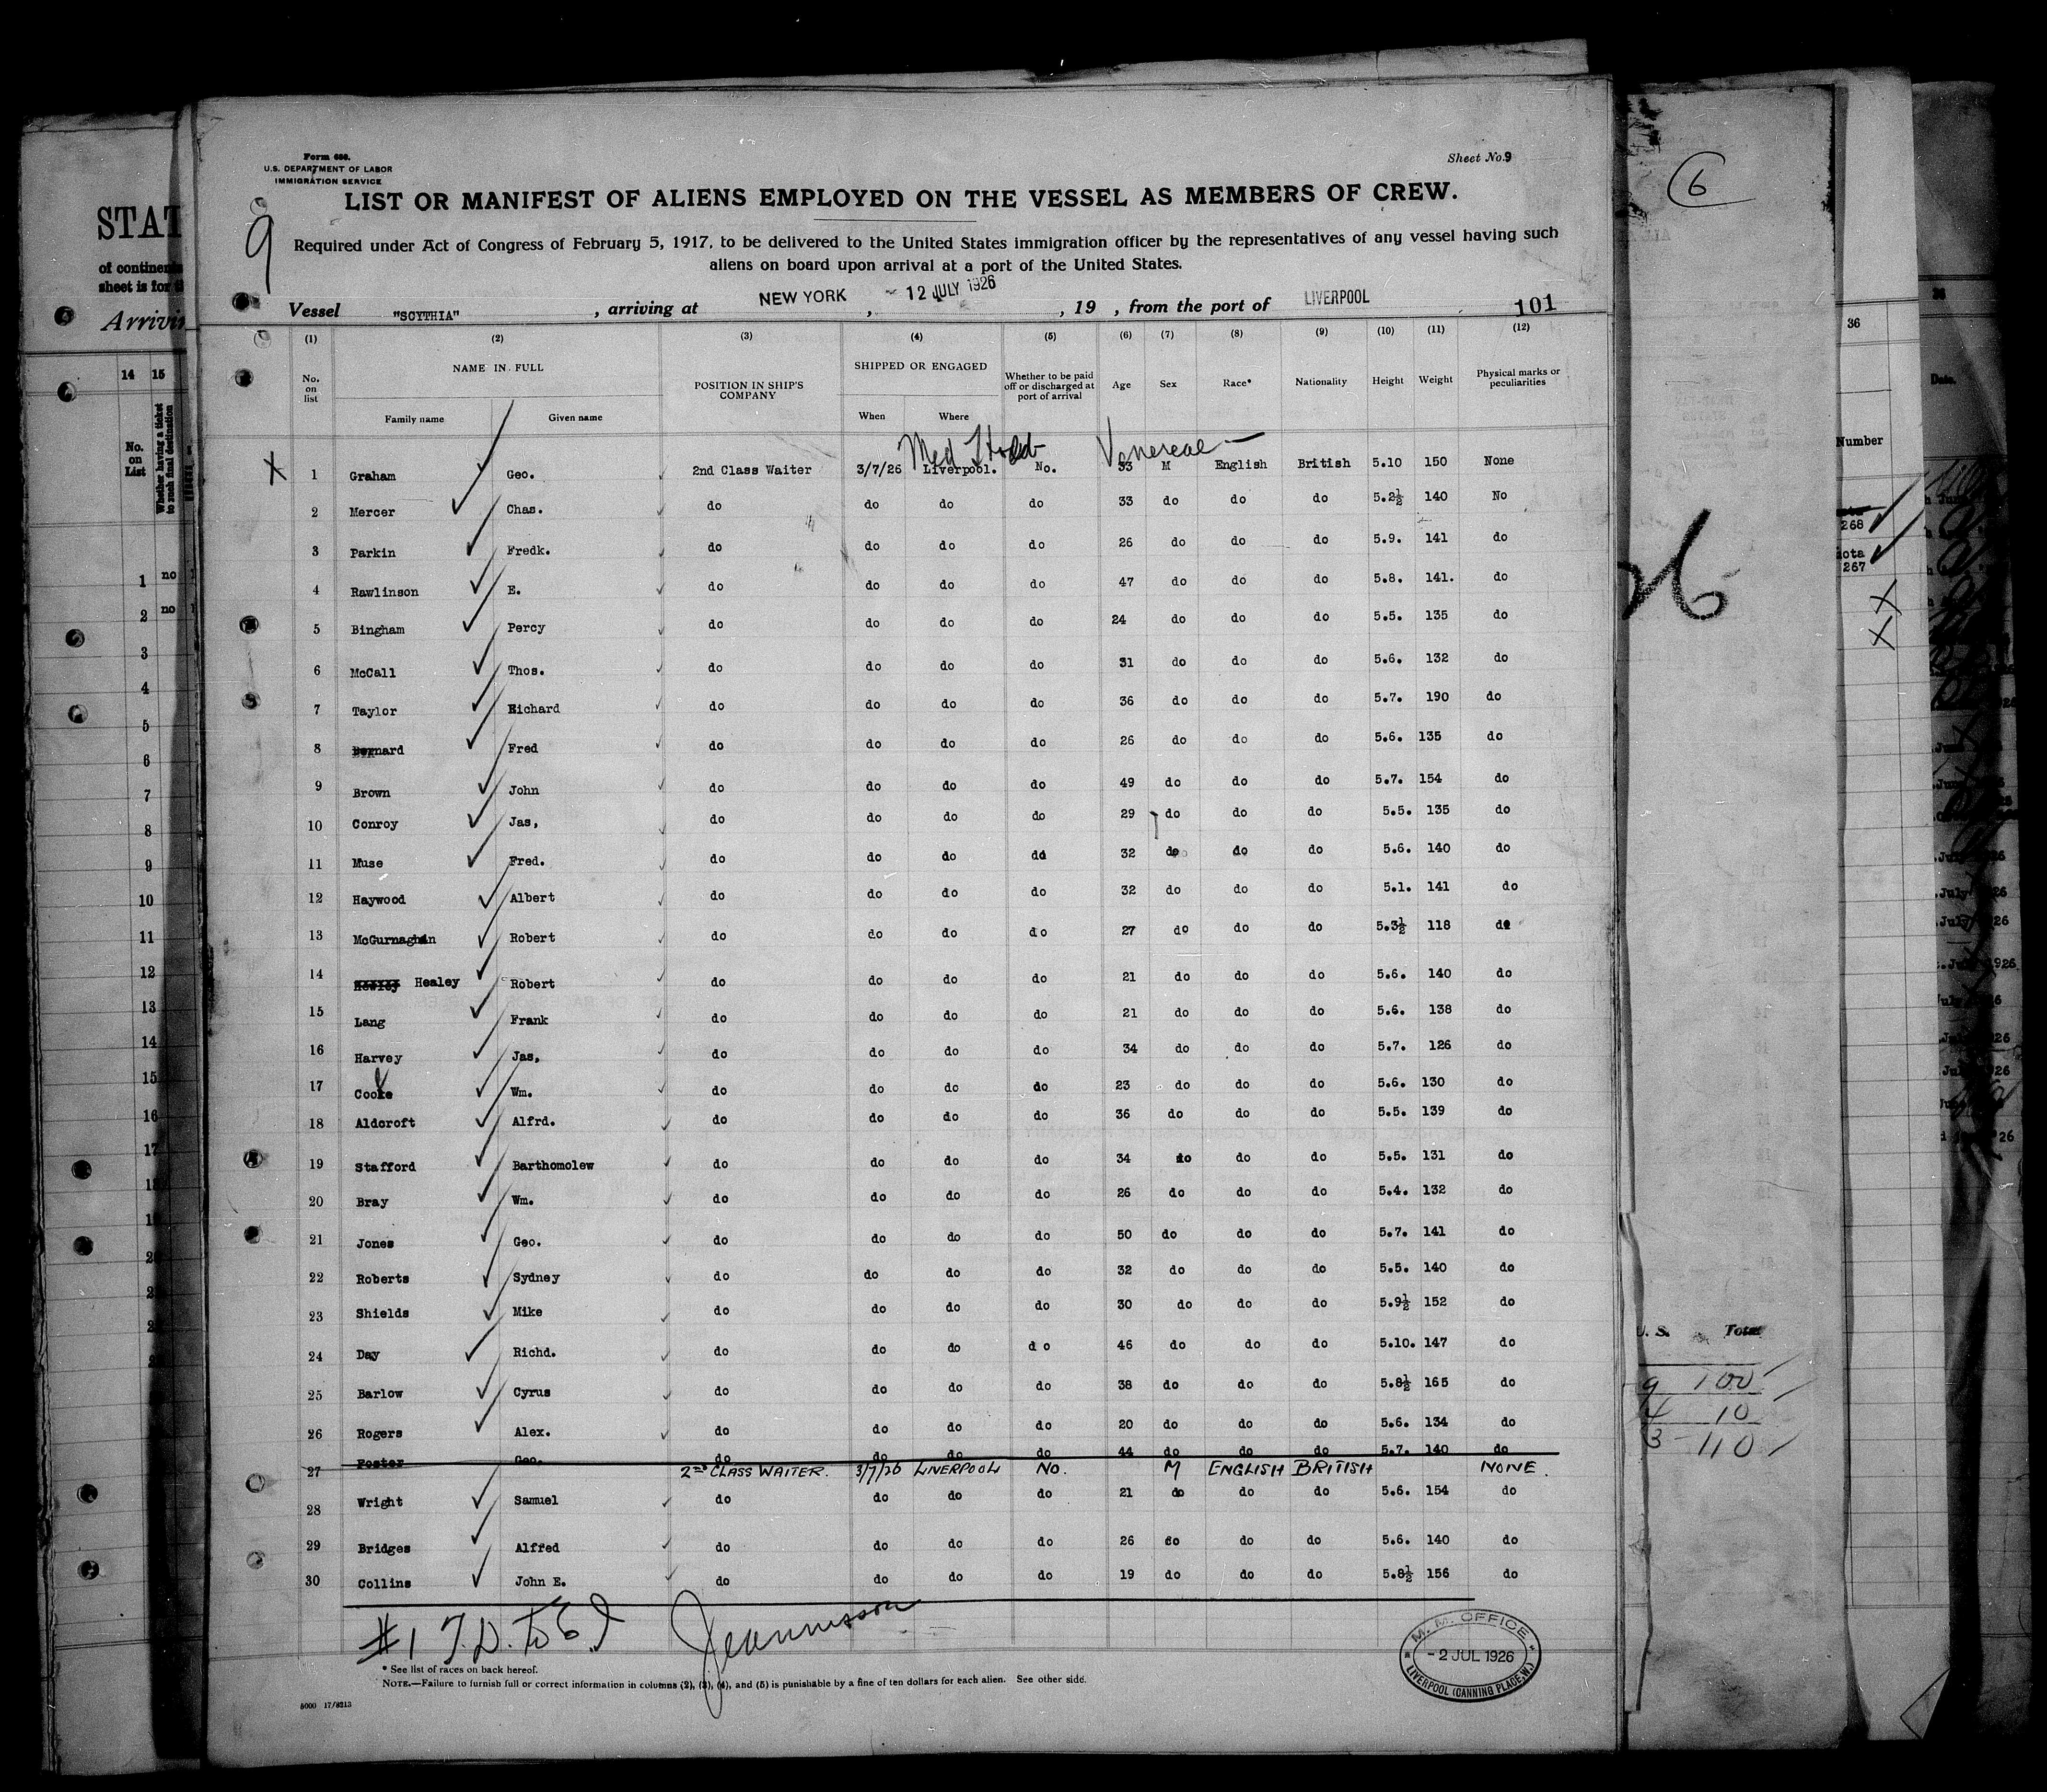 Form 680.
U.S. DEPARTMENT OF LABOR
IMMIGRATION SERVICE
Sheet No. 9
LIST OR MANIFEST OF ALIENS EMPLOYED ON THE VESSEL AS MEMBERS OF CREW.
9
Required under Act of Congress of February 5, 1917, to be delivered to the United States immigration officer by the representatives of any vessel having such
aliens on board upon arrival at a port of the United States.
Vessel "SCYTHIA", arriving at NEW YORK, - 12 JULY 1926, 19 , from the port of LIVERPOOL 101
(1) (2) (3) (4) (5) (6) (7) (8) (9) (10) (11) (12)
No. on list NAME IN FULL Family name Given name POSITION IN SHIP'S COMPANY SHIPPED OR ENGAGED When Where Whether to be paid off or discharged at port of arrival Age Sex Race* Nationality Height Weight Physical marks or peculiarities
Venereal
X 1 Graham Geo. 2nd Class Waiter 3/7/26 Liverpool. No. 33 M English British 5.10 150 None
2 Mercer Chas. do do do do 33 do do do 5.2½ 140 No
3 Parkin Fredk. do do do do 26 do do do 5.9. 141 do
4 Rawlinson E. do do do do 47 do do do 5.8. 141. do
5 Bingham Percy do do do do 24 do do do 5.5. 135 do
6 McCall Thos. do do do do 31 do do do 5.6. 132 do
7 Taylor Richard do do do do 36 do do do 5.7. 190 do
8 Bernard Fred do do do do 26 do do do 5.6. 135 do
9 Brown John do do do do 49 do do do 5.7. 154 do
10 Conroy Jas, do do do do 29 do do do 5.5. 135 do
11 Muse Fred. do do do do 32 do do do 5.6. 140 do
12 Haywood Albert do do do do 32 do do do 5.1. 141 do
13 McGurnaghan Robert do do do do 27 do do do 5.3½ 118 do
14 Healey Robert do do do do 21 do do do 5.6. 140 do
15 Lang Frank do do do do 21 do do do 5.6. 138 do
16 Harvey Jas, do do do do 34 do do do 5.7. 126 do
17 Cooke Wm. do do do do 23 do do do 5.6. 130 do
18 Aldcroft Alfrd. do do do do 36 do do do 5.5. 139 do
19 Stafford Barthomolew do do do do 34 do do do 5.5. 131 do
20 Bray Wm. do do do do 26 do do do 5.4. 132 do
21 Jones Geo. do do do do 50 do do do 5.7. 141 do
22 Roberts Sydney do do do do 32 do do do 5.5. 140 do
23 Shields Mike do do do do 30 do do do 5.9½ 152 do
24 Day Richd. do do do do 46 do do do 5.10. 147 do
25 Barlow Cyrus do do do do 38 do do do 5.8½ 165 do
26 Rogers Alex. do do do do 20 do do do 5.6. 134 do
27 Foster Geo. do do do do 44 do do do 5.7. 140 do
2ND CLASS WAITER. 3/7/26 LIVERPOOL NO. M ENGLISH BRITISH NONE.
28 Wright Samuel do do do do 21 do do do 5.6. 154 do
29 Bridges Alfred do do do do 26 do do do 5.6. 140 do
30 Collins John E. do do do do 19 do do do 5.8½ 156 do
M. M. OFFICE
- 2 JUL 1926
LIVERPOOL (CANNING PLACE, W.)
* See list of races on back hereof.
NOTE.—Failure to furnish full or correct information in columns (2), (3), (4), and (5) is punishable by a fine of ten dollars for each alien. See other side.
5000 17/8213
STAT
of continent
sheet is for
Arrivin
14 15
No. on List
Whether having a ticket to such final destination
1 no
2 no
3
4
5
6
7
8
9
10
11
12
13
14
15
16
17
6
26
U. S. Total
9 100
4 10
3 110
36
Number
268
267
Date.